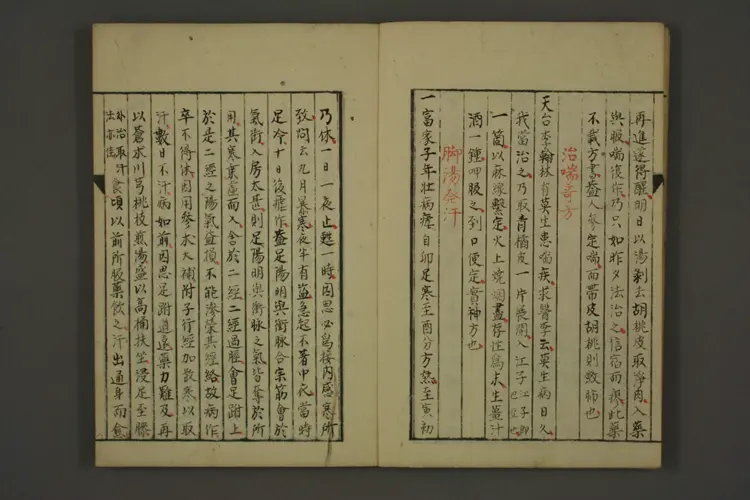 再進遂得醒明日以湯剥去胡桃皮取淨肉入藥
與服喘復作乃只如昨夕法治之信宿而瘳此藥
不載方書蓋人參定喘而帶皮胡桃則斂肺也
治喘奇方
天台李翰林有莫生患喘疾求醫李云莫生病日久
我當治之乃取青橘皮一片展開入江子江子即巴豆也
一箇以麻線繫定火上燒烟盡存性為末生薑汁
酒一鍾呷服之到口便定實神方也
脚湯令汗
一富家子年壯病瘧自卯足寒至酉分方熱至寅初
乃休一日一夜止甦一時因思必為接內感寒所
致問云九月暴寒夜半有盜急起不着中衣當時
足冷十日後瘧作蓋足陽明與衝脉合宗筋會於
氣街入房太甚則足陽明與衝脉之氣皆奪於所
用其寒乘虛而入舍於二經二經過脛會足跗上
於是二經之陽氣益損不能滲榮其經絡故病作
卒不得休因用參术大補附子行經加散寒以取
汗數日不汗病如前因思足跗道遠藥力難及再
以蒼术川芎桃枝煎湯盛以高桶扶坐浸足至膝
食頃以前所服藥飲之汗出通身而愈
外治取汗法亦佳